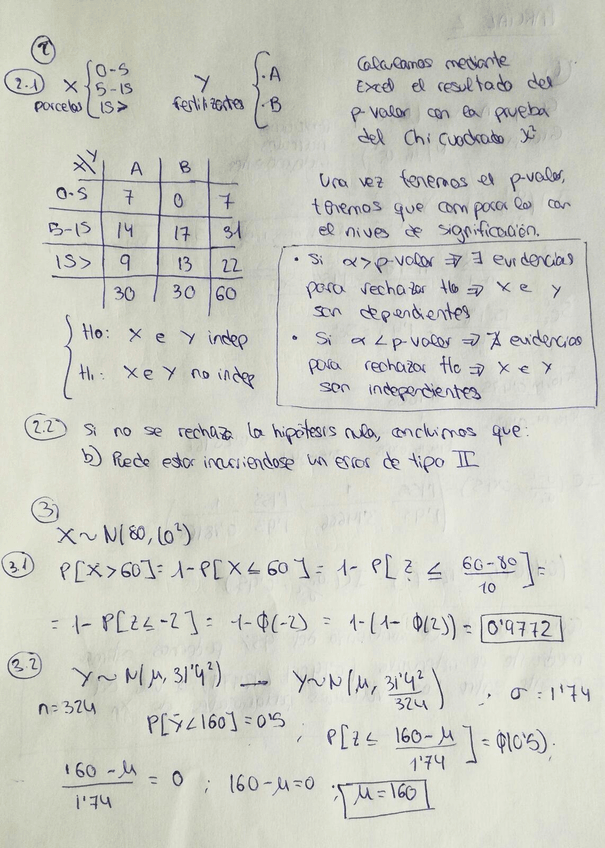 2
2.1 X parcelas { 0-5 5-15 15> Y fertilizantes { · A · B
Calculamos mediante
Excel el resultado del
p-valor con la prueba
del Chi cuadrado χ²
X\Y A B
0-5 7 0 7
5-15 14 17 31
15> 9 13 22
30 30 60
{ H0: X e Y indep
H1: X e Y no indep
Una vez tenemos el p-valor,
tenemos que compararlo con
el nives de significación.
• Si α > p-valor ⇒ ∃ evidencias
para rechazar H0 ⇒ X e Y
son dependientes
• Si α < p-valor ⇒ ∄ evidencias
para rechazar H0 ⇒ X e Y
son independientes
2.2 Si no se rechaza la hipótesis nula, concluimos que:
b) Puede estar incurriendose un error de tipo II
3
X ~ N(80, 10²)
3.1 P[X > 60] = 1 - P[X ≤ 60] = 1 - P[Z ≤ (60-80)/10] =
= 1 - P[Z ≤ -2] = 1 - ϕ(-2) = 1 - (1 - ϕ(2)) = 0'9772
3.2 Y ~ N(μ, 31'4²) → Y ~ N(μ, 31'4²/324) ; σ = 1'74
n = 324
P[Ȳ < 160] = 0'5 ; P[Z ≤ (160 - μ)/1'74] = ϕ(0'5);
(160 - μ)/1'74 = 0 ; 160 - μ = 0 ; μ = 160